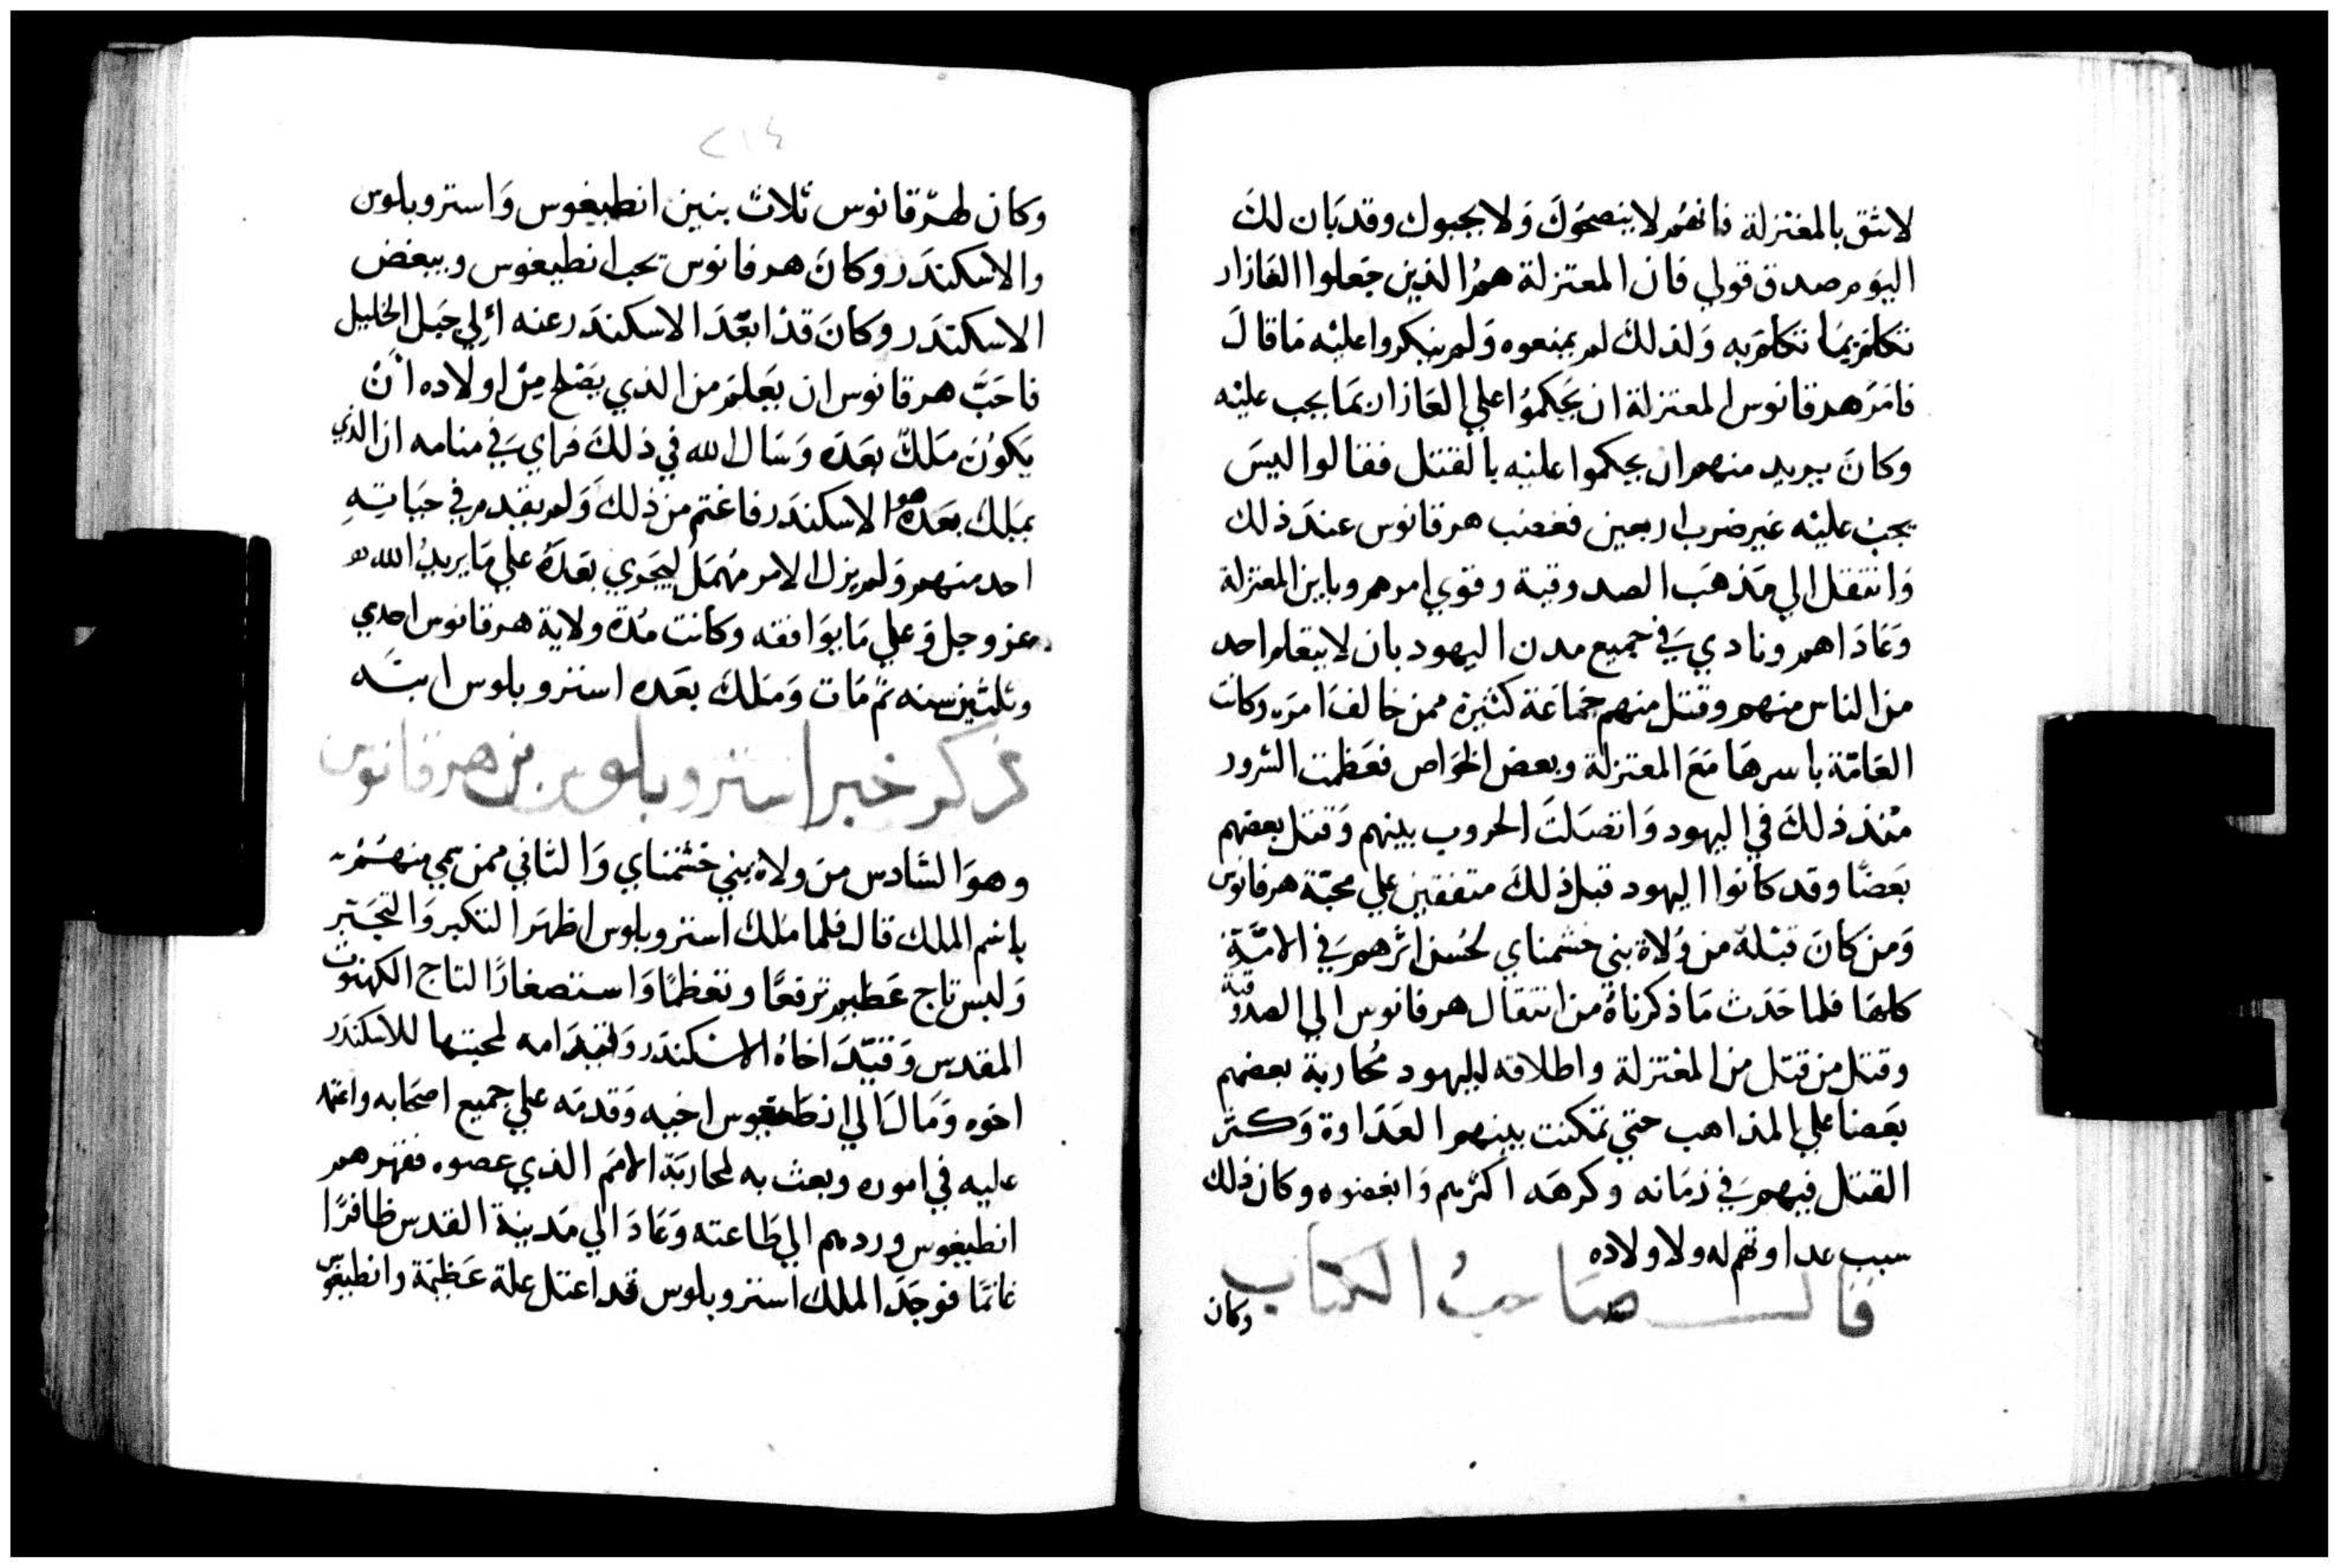 لا تثق بالمعتزلة فانهم لا ينصحوك ولا يحبوك وقد بان لك
اليوم صدق قولي فان المعتزلة هم الذين جعلوا العازار
تكلم بما تكلم به ولذلك لم يمنعوه ولم ينكروا عليه ما قال
فامر هرقانوس المعتزلة ان يحكموا علي العازار بما يجب عليه
وكان يريد منهم ان يحكموا عليه بالقتل فقالوا ليس
يجب عليه غير ضرب اربعين فغضب هرقانوس عند ذلك
وانتقل الي مذهب الصدوقية وقوي امرهم وباين المعتزلة
وعاداهم ونادي في جميع مدن اليهود بان لا يتعلم احد
من الناس منهم وقتل منهم جماعة كثيرة ممن خالف امره وكانت
العامة باسرها مع المعتزلة وبعض الخواص فعظمت الشرور
منذ ذلك في اليهود واتصلت الحروب بينهم وقتل بعضهم
بعضا وقد كانوا اليهود قبل ذلك متفقين علي محبة هرقانوس
ومن كان قبله من ولاة بني حشمناي لحسن اثرهم في الامة
كلها فلما حدث ما ذكرناه من انتقال هرقانوس الي الصدوقية
وقتل من قتل من المعتزلة واطلاقه لليهود محاربة بعضهم
بعضا علي المذاهب حتي تمكنت بينهم العداوة وكثر
القتل فيهم في زمانه وكرهه اكثرهم وابغضوه وكان ذلك
سبب عداوتهم له ولاولاده
قال صاحب الكتاب
وكان
٢١٤
وكان لهرقانوس ثلاث بنين انطيغوس واستروبلوس
والاسكندر وكان هرقانوس يحب انطيغوس ويبغض
الاسكندر وكان قد ابعد الاسكندر عنه الي جبل الخليل
فاحب هرقانوس ان يعلم من الذي يصلح من اولاده ان
يكون ملك بعده وسال الله في ذلك فراي في منامه ان الذي
يملك بعده هو الاسكندر فاغتم من ذلك ولم يقدم في حياته
احد منهم ولم يزل الامر مهمل ليجري بعده علي ما يريد الله
عز وجل وعلي ما يوافقه وكانت مدة ولاية هرقانوس احدي
وثلثين سنه ثم مات وملك بعده استروبلوس ابنه
ذكر خبر استروبلوس بن هرقانوس
وهو السادس من ولاة بني حشمناي والثاني ممن سمي منهم
باسم الملك قال فلما ملك استروبلوس اظهر التكبر والتجبر
ولبس تاج عظيم ترفعا وتعظما واستصغارا لتاج الكهنوت
المقدس وقيد اخاه الاسكندر وقيد امه لمحبتها للاسكندر
اخوه ومال الي انطيغوس اخيه وقدمه علي جميع اصحابه واعتمد
عليه في اموره وبعث به لمحاربة الامم الذي عصوه فقهرهم
انطيغوس وردهم الي طاعته وعاد الي مدينة القدس ظافرا
غانما فوجد الملك استروبلوس قد اعتل علة عظيمة وانطيغوس